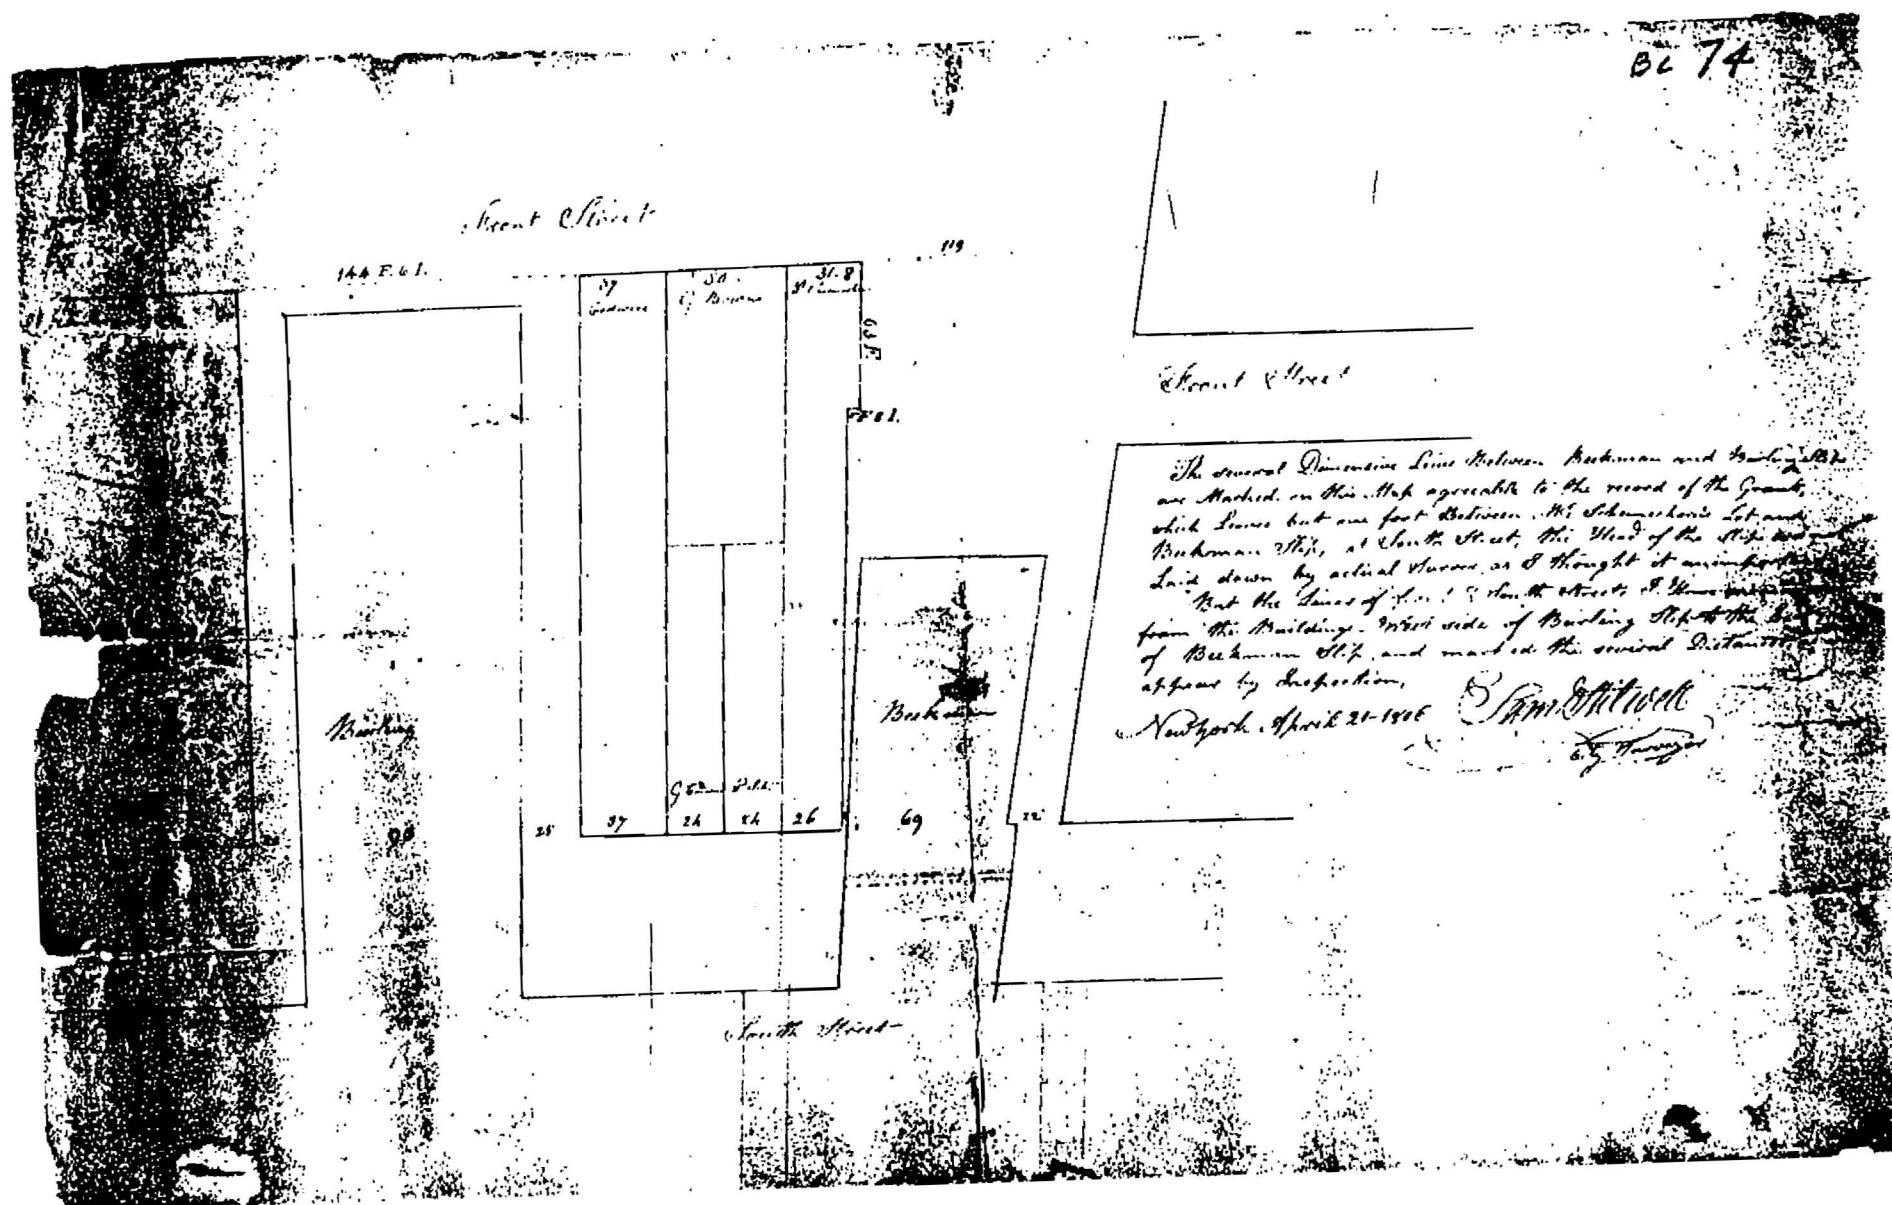 BL 74
Front Street
144 F. 6 I.
119
37
50
31.8
G Browne
63 F.
Front Street
The several Dimensive Lines Between Beekman and Burling Slips
are Marked on this Map agreeable to the record of the Grants,
which Leaves but one foot Between Mr Schermerhorn's Lot and
Beekman Slip, at South Street, the Head of the Slip
Laid down by actual Survey, as I thought it
But the Lines of & South Streets I
from the Buildings West side of Burling Slip to the
of Beekman Slip, and marked the several Distances
appear by Inspection,
New York April 21-1806
Sam Stilwell
City Surveyor
Burling
Beekman
25
37
24
24
26
69
22
South Street